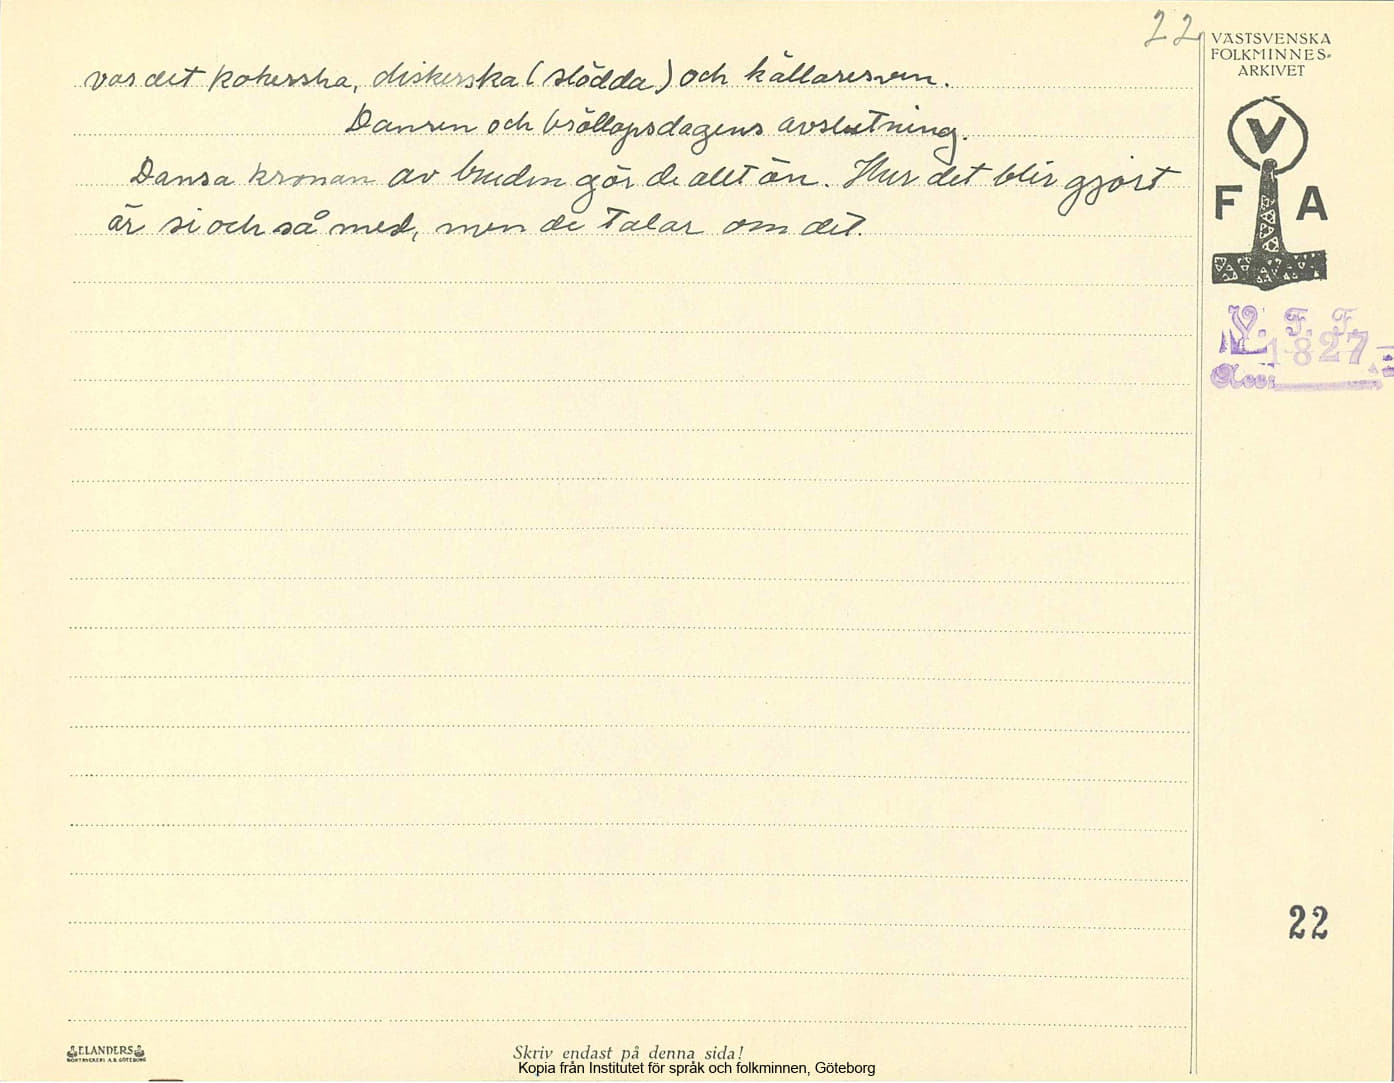 22
VÄSTSVENSKA
FOLKMINNES-
ARKIVET
var det kokerska, diskerska (slödda) och källaresven.
Dansen och bröllopsdagens avslutning.
Dansa kronan av bruden gör de allt än. Hur det blir gjort
är si och så med, men de talar om det.
V
F A
V. F. F.
1827
Acc:
22
ELANDERS
BOKTRYCKERI A.B. GÖTEBORG
Skriv endast på denna sida!
Kopia från Institutet för språk och folkminnen, Göteborg